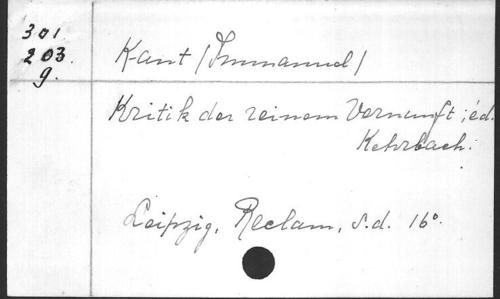 301
203
g.
Kant (Immanuel)
Kritik der reinem Vernunft ; éd.
Kehrbach.
Leipzig, Reclam, s.d. 16°.